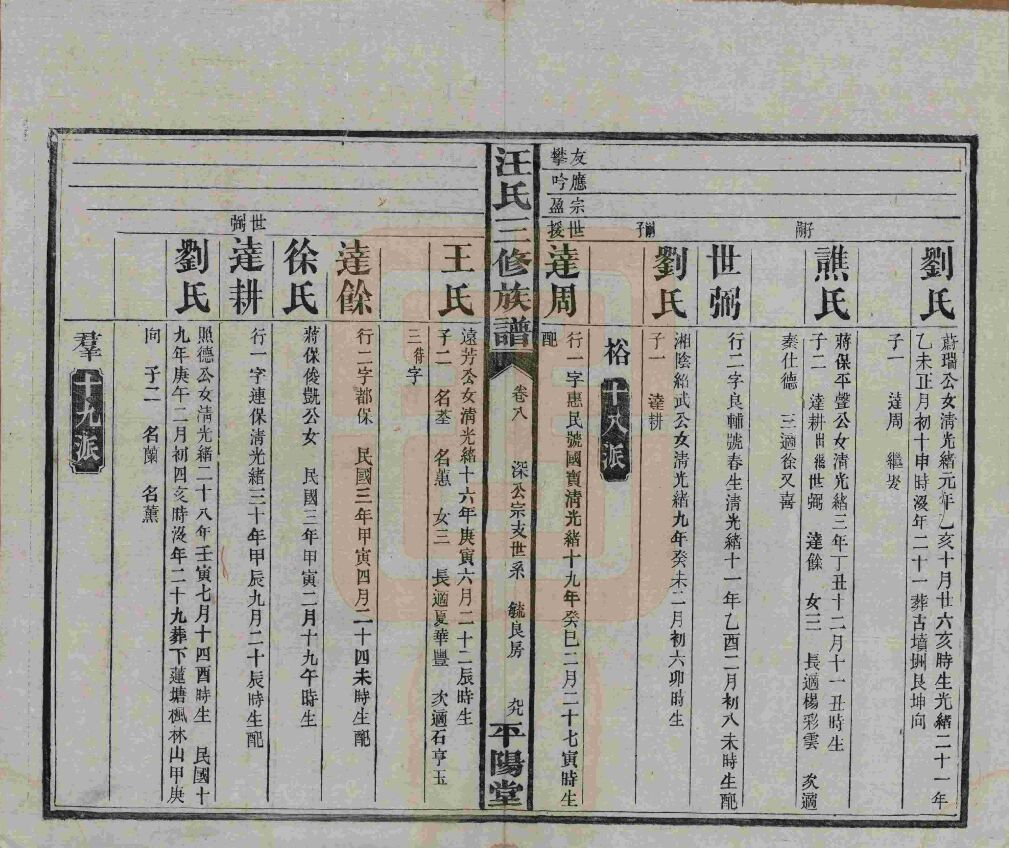 劉氏
蔚瑞公女清光緒元年乙亥十月廿六亥時生光緒二十一年
乙未正月初十申時沒年二十一葬古墳𡊮艮坤向
子一　達周　繼娶
譙氏
蔣保平聲公女清光緒三年丁丑十二月十一丑時生
子二　達耕出繼世弼　達餘　女三　長適楊彩雲　次適
秦仕德　三適徐又喜
世弼
行二字良輔號春生清光緒十一年乙酉二月初八未時生配
嗣子
劉氏
湘陰紹武公女清光緒九年癸未二月初六卯時生
子一　達耕
裕 十八派
友應宗世
攀吟盈援
達周
行一字惠民號國寶清光緒十九年癸巳二月二十七寅時生
配
汪氏三修族譜　卷八　深公宗支世系　毓良房　平陽堂
王氏
遠芳公女清光緒十六年庚寅六月二十二辰時生
子二　名荃　名蕙　女三　長適夏華豐　次適石亨玉
三待字
達餘
行二字都保　民國三年甲寅四月二十四未時生配
徐氏
蔣保俊凱公女　民國三年甲寅二月十九午時生
世弼
達耕
行一字連保清光緒三十年甲辰九月二十辰時生配
劉氏
照德公女清光緒二十八年壬寅七月十四酉時生　民國十
九年庚午二月初四亥時沒年二十九葬下蓮塘楓林山甲庚
向　子二　名蘭　名薰
羣 十九派